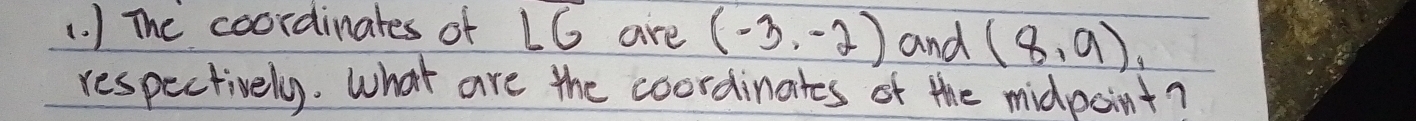 1.) The coordinates of LG are (-3,-2) and (8,9),
respectively. What are the coordinates of the midpoint?